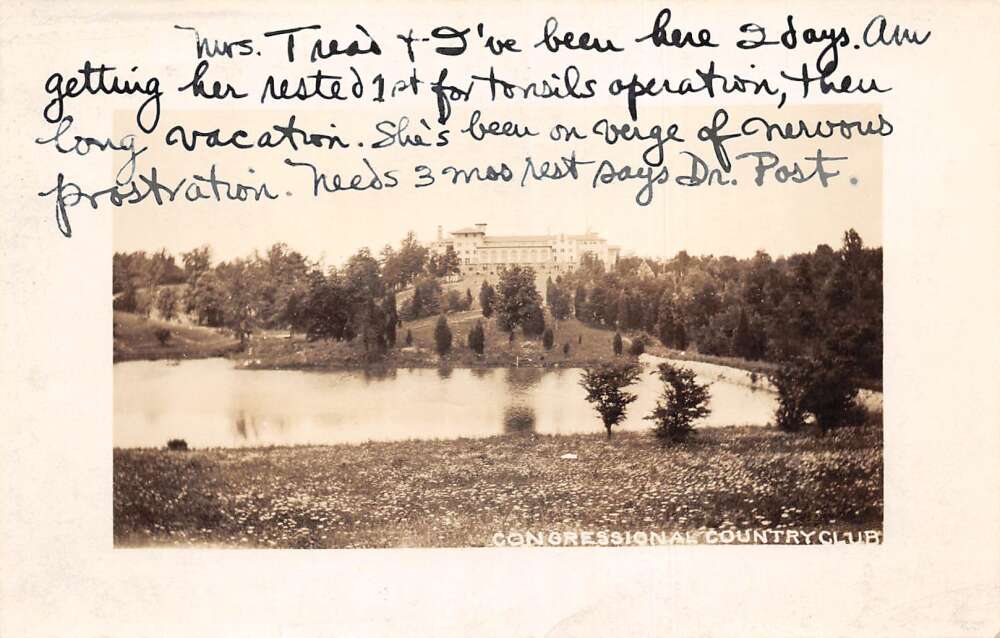 Mrs. Tread & I've been here 2 days. Am
getting her rested 1st for tonsils operation, then
long vacation. She's been on verge of nervous
prostration. Needs 3 mos rest says Dr. Post.
CONGRESSIONAL COUNTRY CLUB